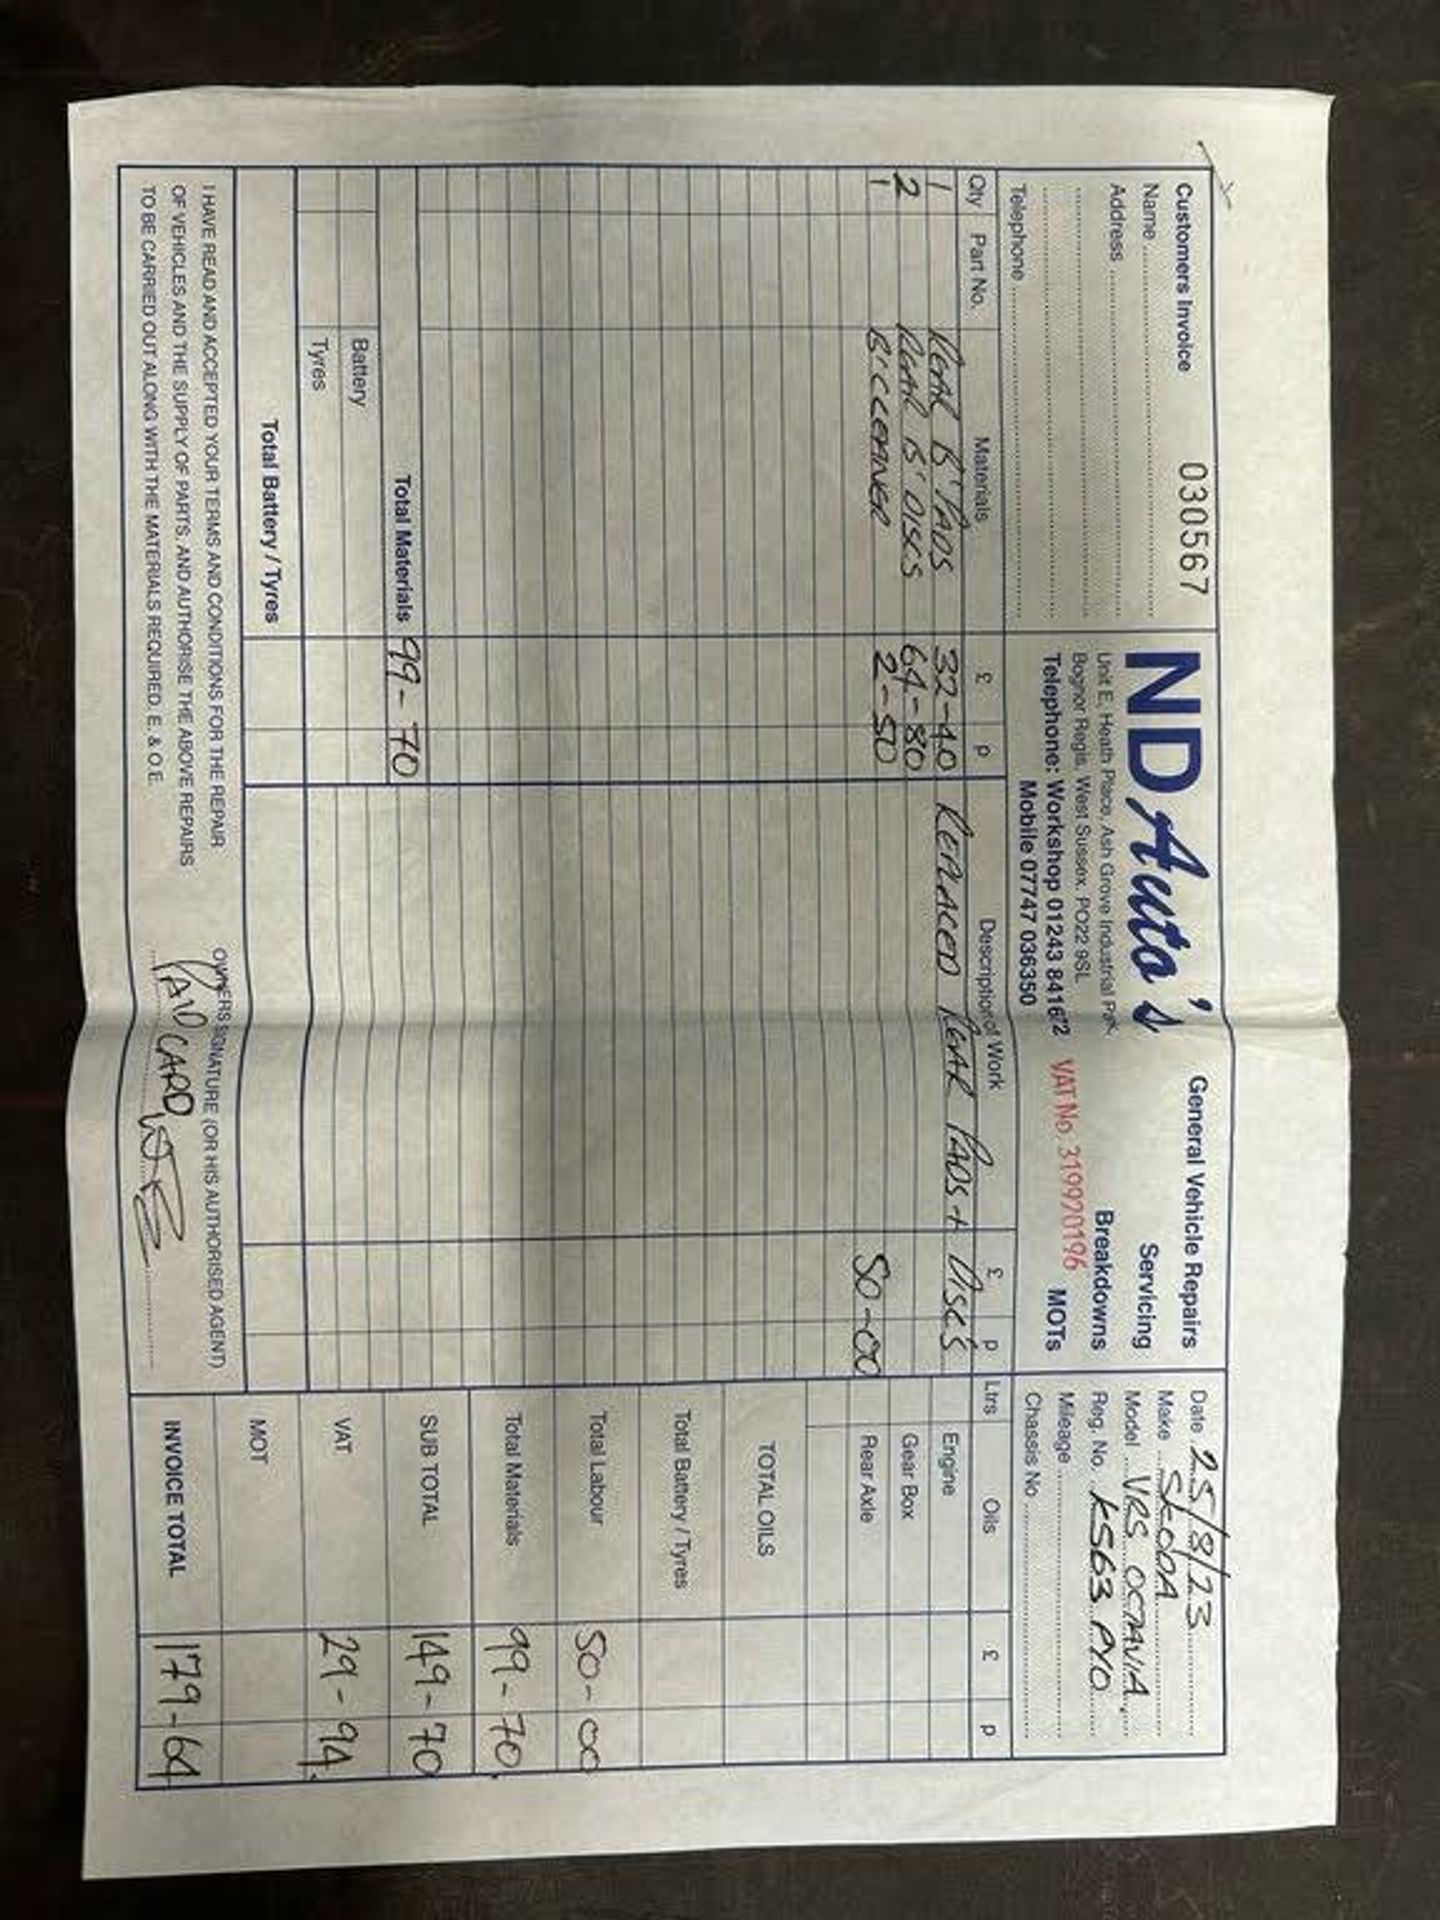 Customers Invoice 030567
Name
Address
Telephone
NDAuto's
Unit E, Heath Place, Ash Grove Industrial Park,
Bognor Regis, West Sussex, PO22 9SL
Telephone: Workshop 01243 841672
Mobile 07747 036350
General Vehicle Repairs
Servicing
Breakdowns
VAT No. 319920196 MOTs
Date 25/8/23
Make SKODA
Model VRS OCTAVIA
Reg. No. KS63 PYO
Mileage
Chassis No
Qty Part No. Materials £ p Description of Work £ p Ltrs Oils £ p
1 REAR B'PADS 32-40 REPLACED REAR PADS + DISC'S Engine
2 REAR B'DISCS 64-80 Gear Box
1 B'CLEANER 2-50 50-00 Rear Axle
TOTAL OILS
Total Battery / Tyres
Total Labour 50-00
Total Materials 99-70
Total Materials 99-70
SUB TOTAL 149-70
Battery
Tyres
VAT 29-94
Total Battery / Tyres
MOT
INVOICE TOTAL 179-64
I HAVE READ AND ACCEPTED YOUR TERMS AND CONDITIONS FOR THE REPAIR
OF VEHICLES AND THE SUPPLY OF PARTS, AND AUTHORISE THE ABOVE REPAIRS
TO BE CARRIED OUT ALONG WITH THE MATERIALS REQUIRED. E. & O.E.
OWNERS SIGNATURE (OR HIS AUTHORISED AGENT)
PAID CARD